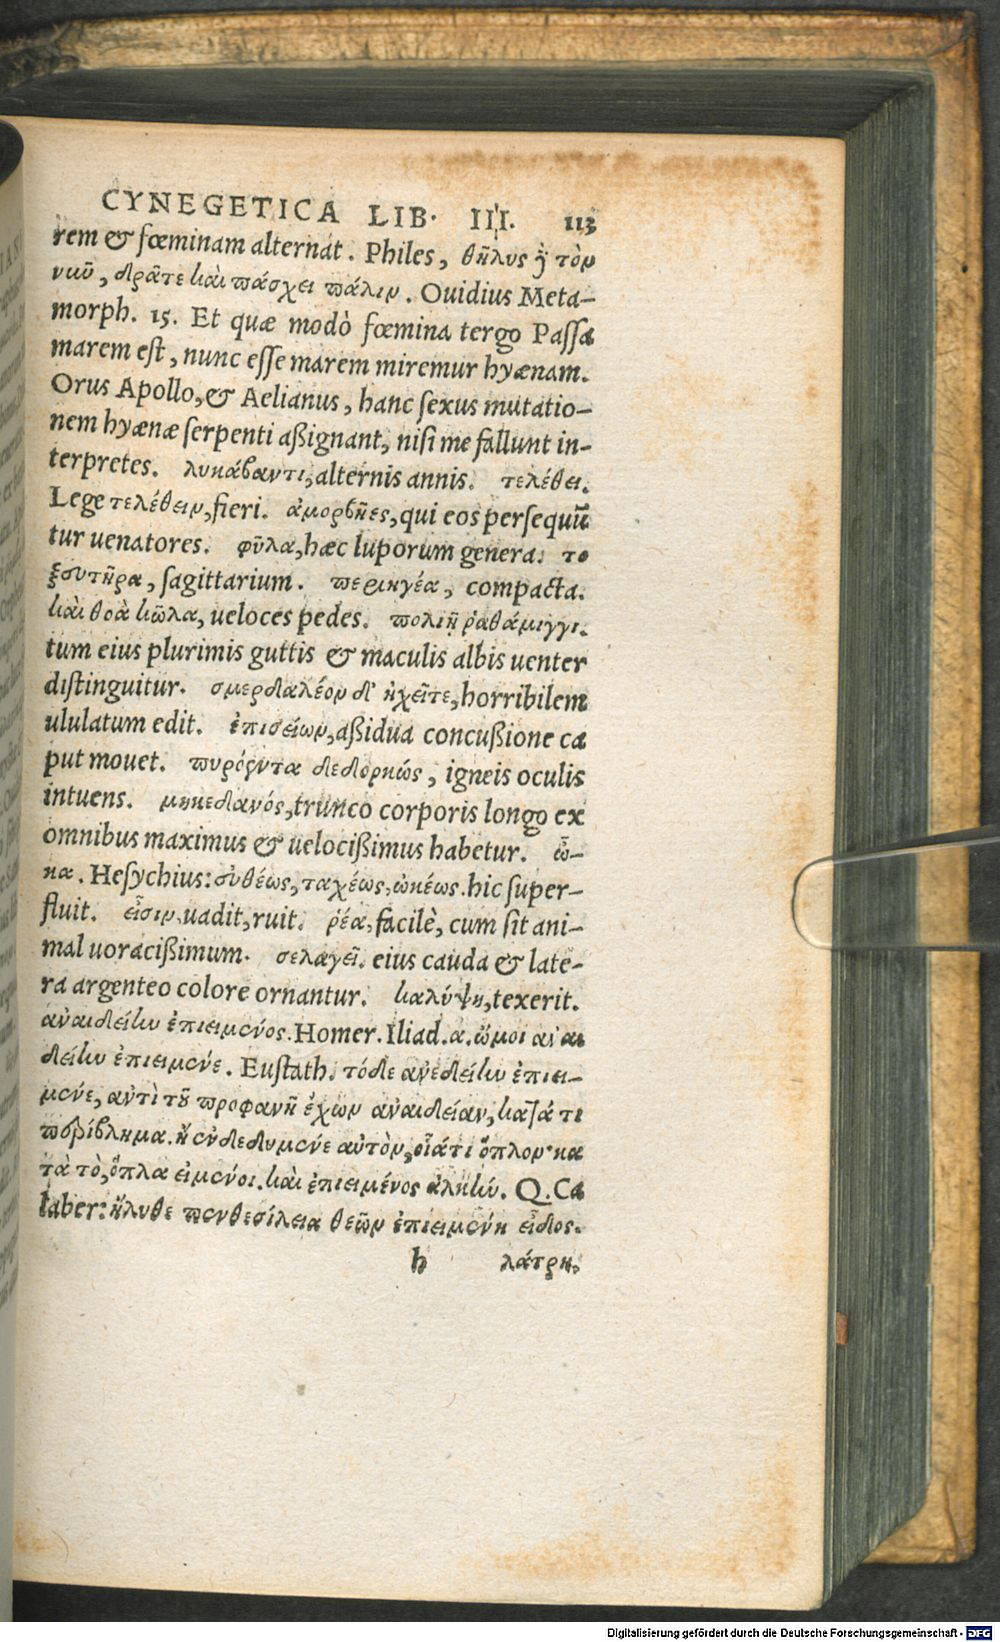 CYNEGETICA LIB. III. 113
rem & fœminam alternāt. Philes, θῆλυς ἢ τὸν
νιῦ, δρᾶτε καὶ πάσχει πάλιν. Ouidius Meta-
morph. 15. Et quæ modò fœmina tergo Passa
marem est, nunc esse marem miremur hyænam.
Orus Apollo, & Aelianus, hanc sexus mutatio-
nem hyænæ serpenti aßignant, nisi me fallunt in-
terpretes. λυκάβαντι, alternis annis. τελέθει.
Lege τελέθειν, fieri. ἀμορβῆες, qui eos persequū
tur uenatores. φῦλα, hæc luporum genera. το
ξευτῆρα, sagittarium. περιηγέα, compacta.
καὶ θοὰ κῶλα, ueloces pedes. πολιῇ ῥαθάμιγγι.
tum eius plurimis guttis & maculis albis uenter
distinguitur. σμερδαλέον δ' ἠχεῖτε, horribilem
ululatum edit. ἐπισείων, aßidua concußione ca
put mouet. πυρόεντα δεδορκώς, igneis oculis
intuens. μηκεδανός, trunco corporis longo ex
omnibus maximus & uelocißimus habetur. ὦ-
κα. Hesychius: εὐθέως, ταχέως, ὠκέως. hic super-
fluit. εἶσιν, uadit, ruit. ῥέα, facilè, cum sit ani-
mal uoracißimum. σελαγεῖ. eius cauda & late-
ra argenteo colore ornantur. καλύψη, texerit.
ἀναιδείην ἐπιειμένος. Homer. Iliad. α. ὤμοι ἀναι
δείην ἐπιειμένε. Eustath. τόδε ἀνεδείην ἐπιει-
μένε, ἀντὶ τοῦ προφανῆ ἔχων ἀναιδείαν, κατά τι
περίβλημα. ἢ ἐνδεδυμένε αὐτὸν, οἷά τι ὅπλον· κα
τὰ τὸ, ὅπλα εἱμένοι. καὶ ἐπιειμένος ἀλκήν. Q. Ca
laber: ἤλυθε πενθεσίλεια θεῶν ἐπιειμένη εἶδος.
h λάτρη,
Digitalisierung gefördert durch die Deutsche Forschungsgemeinschaft - DFG